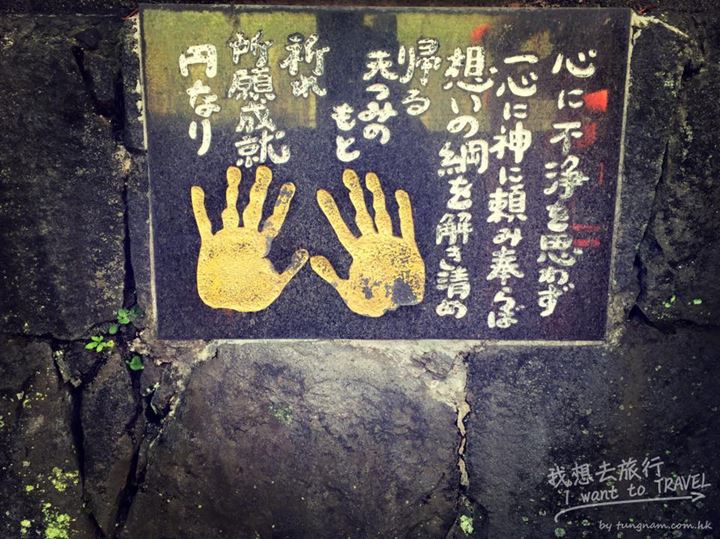 心に不浄を思わず
一心に神に頼み奉らば
想いの綱を解き清め
帰る
天つみの
もと
祈れ
所願成就
円なり
我想去旅行
I want to TRAVEL
by tungnam.com.hk